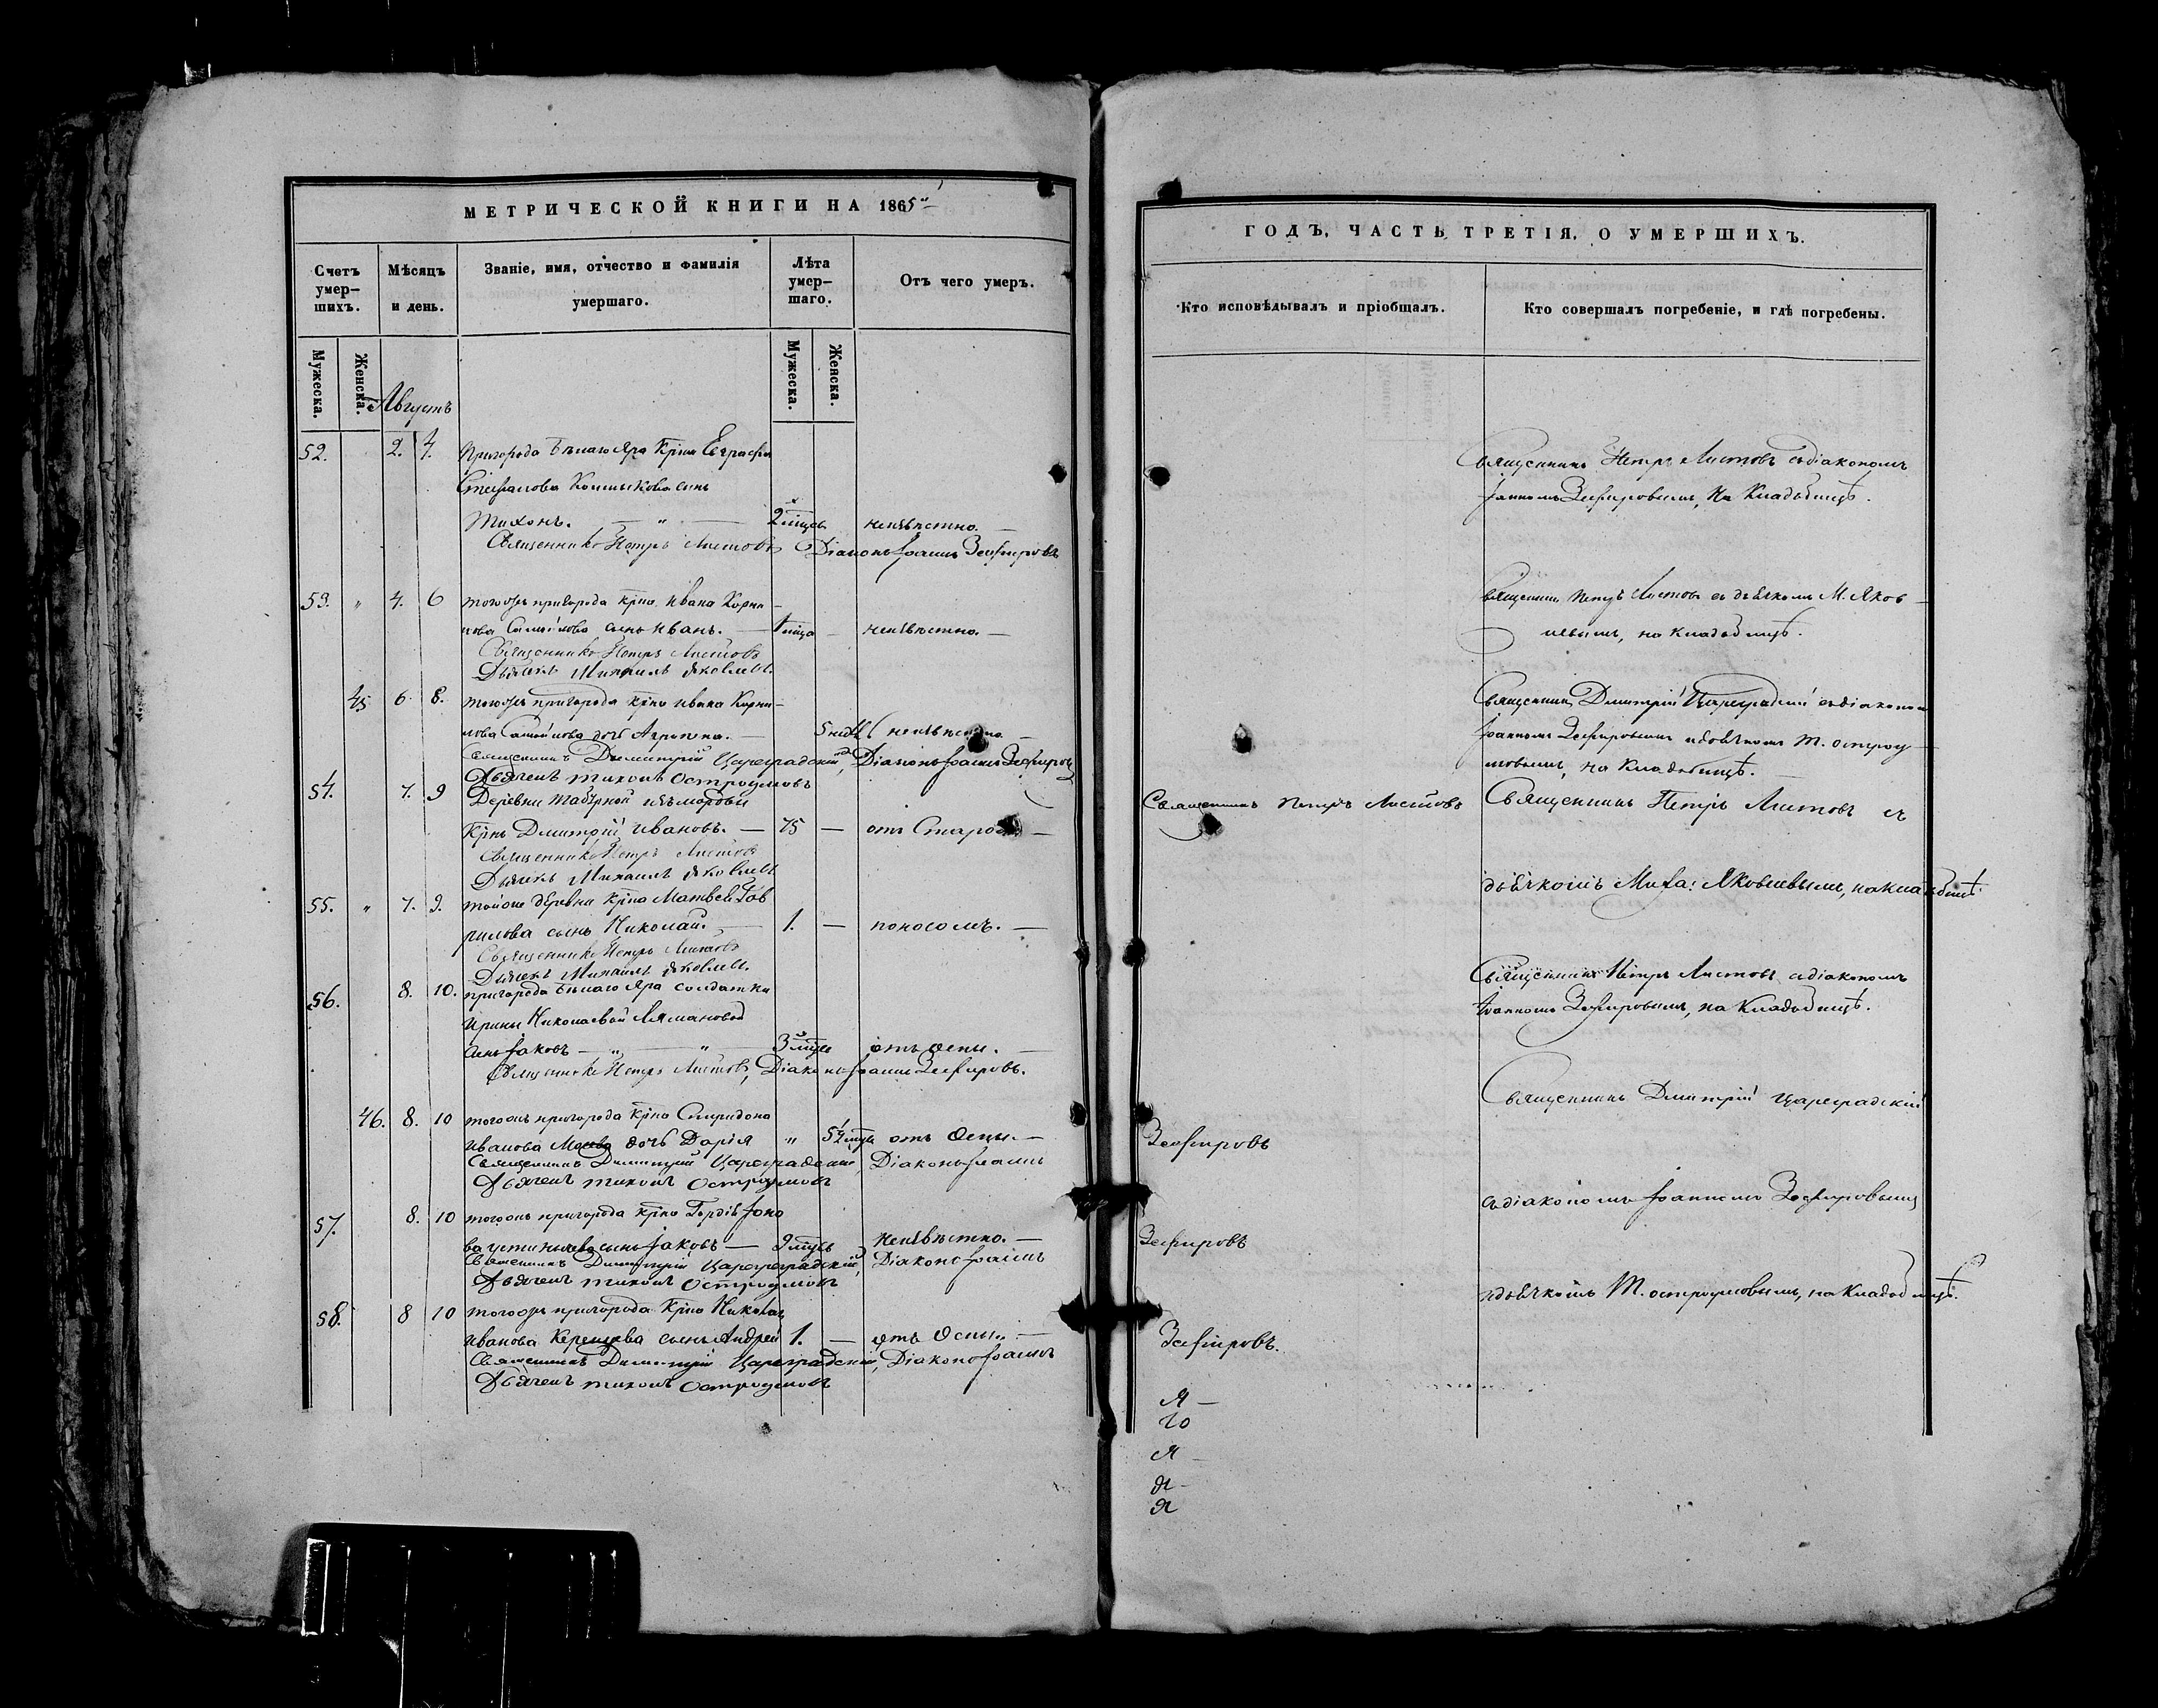 МЕТРИЧЕСКОЙ КНИГИ НА 1865
Счетъ умер-шихъ.
Мѣсяцъ и день.
Званіе, имя, отчество и фамилія умершаго.
Лѣта умер-шаго.
Отъ чего умеръ.
Мужеска.
Женска.
Мужеска.
Женска.
Августъ
52. 2. 4. Пригорода Бѣлаго Яра Крѣна Евграфа
Стефанова сынъ
Тихонъ. — " — 2 мцвъ неизвѣстно. —
Священникъ Петръ Листовъ Діаконъ Іоаннъ Зефировъ
53. " 4. 6 тогожъ пригорода крѣна Ивана Корни-
лова Самойлова сынъ Иванъ. — 1 мца — неизвѣстно. —
Священникъ Петръ Листовъ
Дьячекъ Михаилъ Яковлевъ.
45 6. 8. тогожъ пригорода крѣна Ивана Корни-
лова Самойлова дочь Агрипена. — 5 нед неизвѣстно. —
Священникъ Димитрій Цареградскій, Діаконъ Іоаннъ Зефировъ
Дьячекъ Тихонъ Остроумовъ
54. 7. 9 Деревни изъ мордвы
Крѣнъ Дмитрій Ивановъ. — 75 — отъ Старос —
Священникъ Петръ Листовъ
Дьячекъ Михаилъ Яковлевъ
55. " 7. 9. тойже деревни крѣна Матвея Гав
рилова сынъ Николай. — 1. — поносомъ. —
Священникъ Петръ Листовъ
Дьячекъ Михаилъ Яковлевъ.
56. 8. 10. пригорода Бѣлаго Яра солдатки
Ирины Николаевой
сынъ Іаковъ — " — " — 3 мцвъ отъ Оспы. —
Священникъ Петръ Листовъ, Діаконъ Іоаннъ Зефировъ.
46. 8. 10 тогожъ пригорода крѣна Спиридона
Иванова дочь Дарія " 5 мцвъ отъ Оспы. —
Священникъ Димитрій Цареградскій, Діаконъ Іоаннъ
Дьячекъ Тихонъ Остроумовъ
57. 8. 10 тогожъ пригорода крѣна Гордѣя
сынъ Іаковъ — 9 мцвъ неизвѣстно. —
Священникъ Димитрій Цареградскій, Діаконъ Іоаннъ
Дьячекъ Тихонъ Остроумовъ
58. 8 10 тогожъ пригорода Крѣна Николая
Иванова сынъ Андрей 1. — отъ Оспы. —
Священникъ Димитрій Цареградскій, Діаконъ Іоаннъ
Дьячекъ Тихонъ Остроумовъ
ГОДЪ, ЧАСТЬ ТРЕТІЯ, О УМЕРШИХЪ.
Кто исповѣдывалъ и пріобщалъ.
Кто совершалъ погребеніе, и гдѣ погребены.
Священникъ Петръ Листовъ съ діакономъ
Іоанномъ Зефировымъ, на Кладбищѣ.
Священникъ Петръ Листовъ съ дьячкомъ М. Яков-
левымъ, на кладбищѣ.
Священникъ Димитрій Цареградскій съ діакономъ
Іоанномъ Зефировымъ и дьячкомъ Т. Остроу-
мовымъ, на Кладбищѣ.
Священникъ Петръ Листовъ
Священникъ Петръ Листовъ съ
дьячкомъ Миха: Яковлевымъ, на кладбищѣ
Священникъ Петръ Листовъ съ діакономъ
Іоанномъ Зефировымъ, на Кладбищѣ.
Священникъ Дмитрій Цареградскій
Зефировъ
съ діакономъ Іоанномъ Зефировымъ
Зефировъ
и дьячкомъ Т. Остроумовымъ, на Кладбищѣ.
Зефировъ.